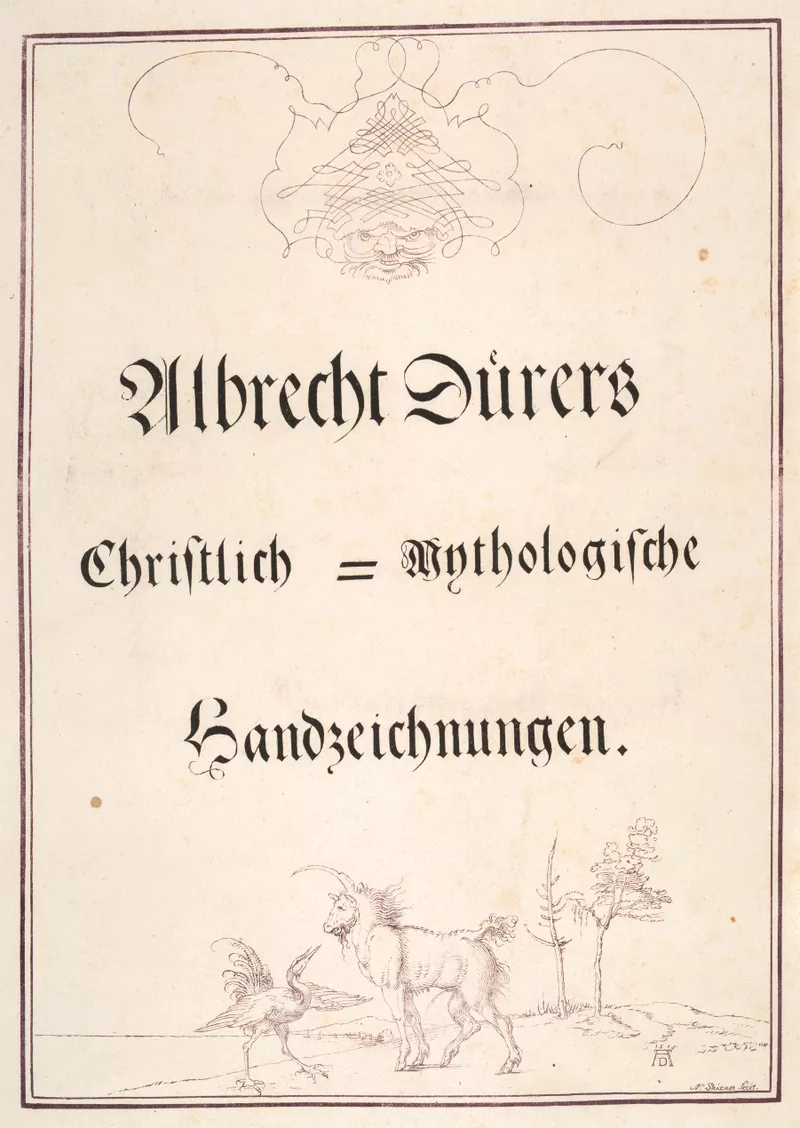 Albrecht Dürers
Christlich = Mythologische
Handzeichnungen.
1515
AD
N. Strixner fecit.